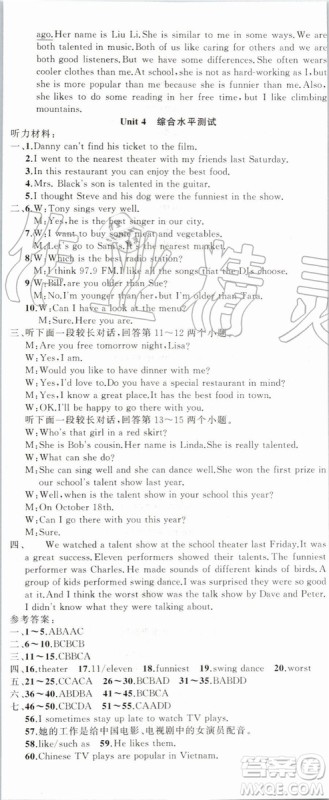 ago. Her name is Liu Li. She is similar to me in some ways. We are
both talented in music. Besides, we both care about others and we
both are good listeners. But we are different in other ways. She often
wears cooler clothes than me. At school, she is much smarter than me.
she likes to do some reading in her free time, but I like climbing
mountains.
Unit 4 综合水平测试
听力材料:
一、1. Danny can't find his ticket to the film.
2. I went to the nearest theater with my friends last Saturday.
3. In this restaurant you can enjoy the best food.
4. Mrs. Black's son is talented in music.
5. I thought Steve and his dog were the funniest in the show.
二、6. W: Tony sings very well.
M: Yes, he is the best singer in our city.
7. W: I want to buy some meat and vegetables.
M: Let's go to Sam's. It's the cheapest.
8. W: Which is the best radio station?
M: I think 97.9 FM. I like all the songs that the DJs choose.
9. W: Bill, are you older than Tara?
M: No, I'm younger than Bob, but Bob is older than Tara.
10. W: Can I have a look at the computer?
M: Sure.
三、听下面一段较长对话,回答第 11～12 两个小题。
M: Are you free tomorrow, Lisa?
W: Yes, I am.
M: Would you like to have dinner with me?
W: Yes, I'd love to. But where can we go?
M: I know a great place. It has the best food in town.
W: OK. See you then.
听下面一段较长对话,回答第 13～15 两个小题。
W: Who's that girl in a red skirt?
M: She is Bob's cousin. Her name is Linda. She is really talented.
W: What can she do?
M: She can sing well and she can dance well. She won the first prize in
our school's talent show in the school talent show.
W: When is your school's talent show this year?
M: On October 18th.
W: Can I go there with you this year?
M: Sure.
四、We watched a talent show at the school theater last Friday. It was
a great success. Eleven performers showed their talents. The funniest
performer was Charles. He can imitate the sounds of different birds. A
group of kids performed swing dance. I was surprised they were so
creative. But I didn't like the talk show by Dave and Peter. I
think it was the worst.
参考答案:
一、1～5. ABAAC
二、6～10. BCBCB
三、11～15. CBBCA
四、16. theater 17. 11/eleven 18. funniest 19. swing dance 20. worst
五、21～25. CCACA 26～30. BCBCB 31～35. BABDD
六、36～40. ABDBA 41～45. BCACB
七、46～50. CBCDA 51～55. BADBC
56. I sometimes stay up late to watch TV plays.
57. 她的工作是给中国电影、电视剧中的主演员配音。
58. like/such as 59. like/such as
60. Chinese TV plays are popular in Vietnam.